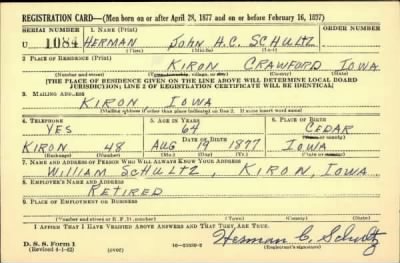 REGISTRATION CARD—(Men born on or after April 28, 1877 and on or before February 16, 1897)
SERIAL NUMBER 1. NAME (Print) ORDER NUMBER
U 1084 HERMAN JOHN H.C. SCHULTZ
(First) (Middle) (Last)
2. PLACE OF RESIDENCE (Print)
KIRON CRAWFORD IOWA
(Number and street) (Town, township, village, or city) (County) (State)
[THE PLACE OF RESIDENCE GIVEN ON THE LINE ABOVE WILL DETERMINE LOCAL BOARD
JURISDICTION; LINE 2 OF REGISTRATION CERTIFICATE WILL BE IDENTICAL]
3. MAILING ADDRESS
KIRON IOWA
(Mailing address if other than place indicated on line 2. If same insert word same)
4. TELEPHONE 5. AGE IN YEARS 6. PLACE OF BIRTH
YES 64 CEDAR
DATE OF BIRTH (Town or county)
KIRON 48 AUG 19 1877 IOWA
(Exchange) (Number) (Mo.) (Day) (Yr.) (State or country)
7. NAME AND ADDRESS OF PERSON WHO WILL ALWAYS KNOW YOUR ADDRESS
WILLIAM SCHULTZ, KIRON, IOWA
8. EMPLOYER'S NAME AND ADDRESS
RETIRED
9. PLACE OF EMPLOYMENT OR BUSINESS
(Number and street or R. F. D. number) (Town) (County) (State)
I AFFIRM THAT I HAVE VERIFIED ABOVE ANSWERS AND THAT THEY ARE TRUE.
D. S. S. Form 1
(Revised 4-1-42) (over) Herman C. Schultz
(Registrant's signature)